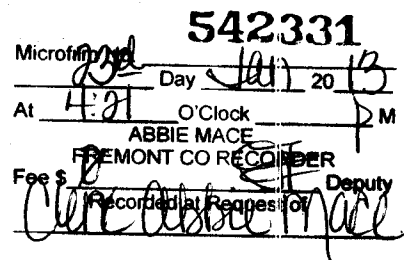 542331
Microfilm 23rd Day Jan 20 13
At 4:21 O'Clock P M
ABBIE MACE
FREMONT CO RECORDER
Fee $ Deputy
Recorded at Request of
Abbie Mace